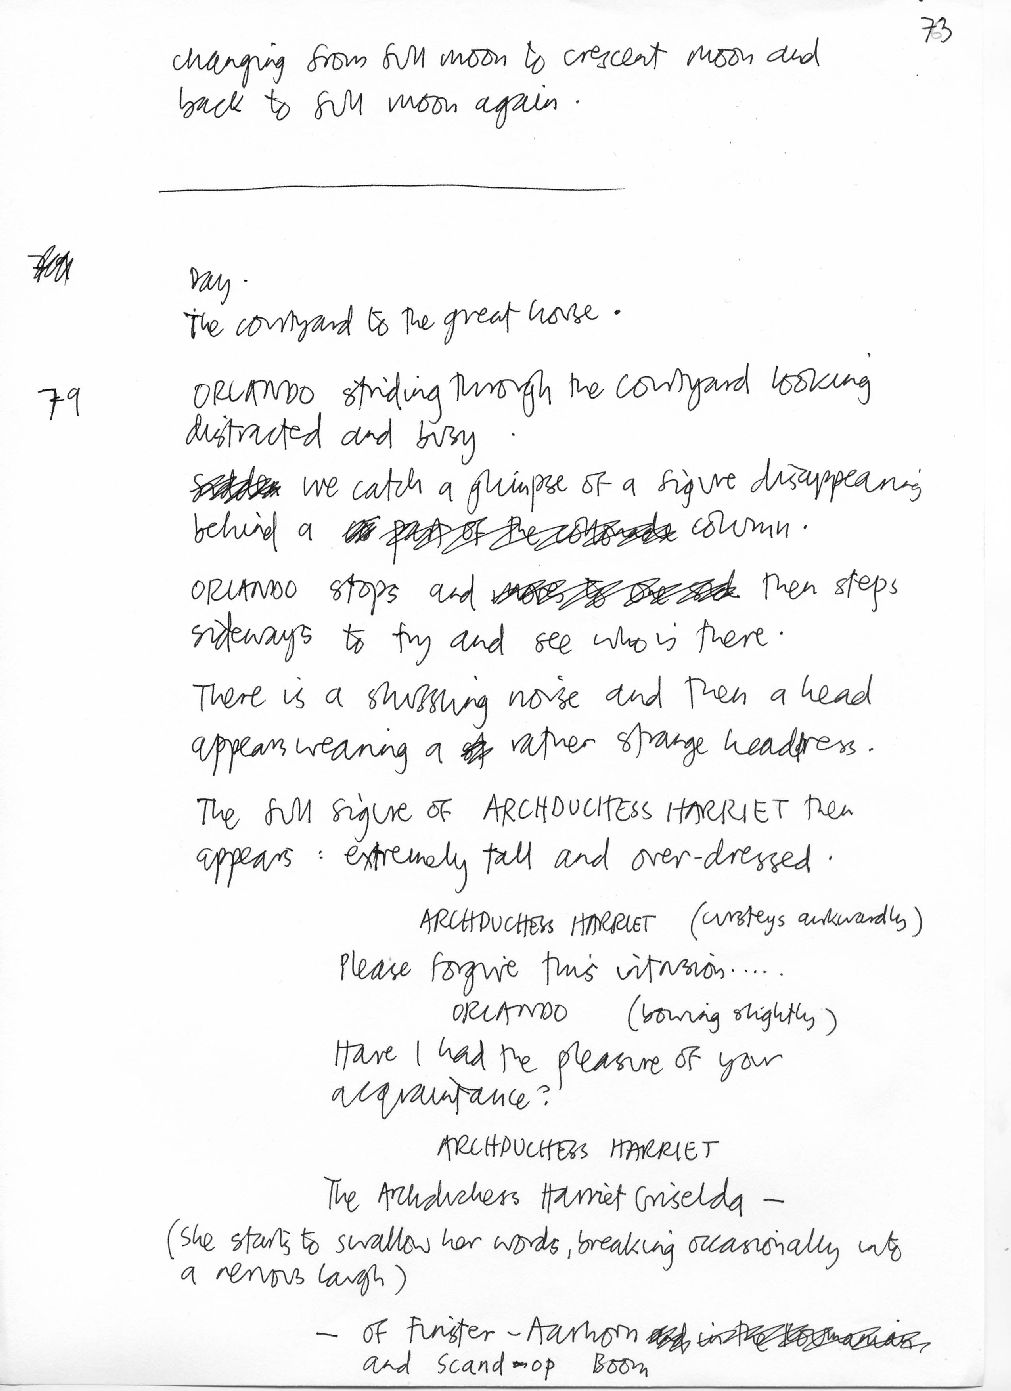 73
changing from full moon to crescent moon and
back to full moon again.
Day.
The courtyard to the great house.
79
ORLANDO striding through the courtyard looking
distracted and busy.
we catch a glimpse of a figure disappearing
behind a part of the colonnade column.
ORLANDO stops and moves to one side then steps
sideways to try and see who is there.
There is a shuffling noise and then a head
appears wearing a rather strange headdress.
The full figure of ARCHDUCHESS HARRIET then
appears: extremely tall and over-dressed.
ARCHDUCHESS HARRIET (curtseys awkwardly)
Please forgive this intrusion.....
ORLANDO (bowing slightly)
Have I had the pleasure of your
acquaintance?
ARCHDUCHESS HARRIET
The Archduchess Harriet Griselda —
(she starts to swallow her words, breaking occasionally into
a nervous laugh)
— of Finister-Aarhorn and in the Roumanian
and Scand-op Boom